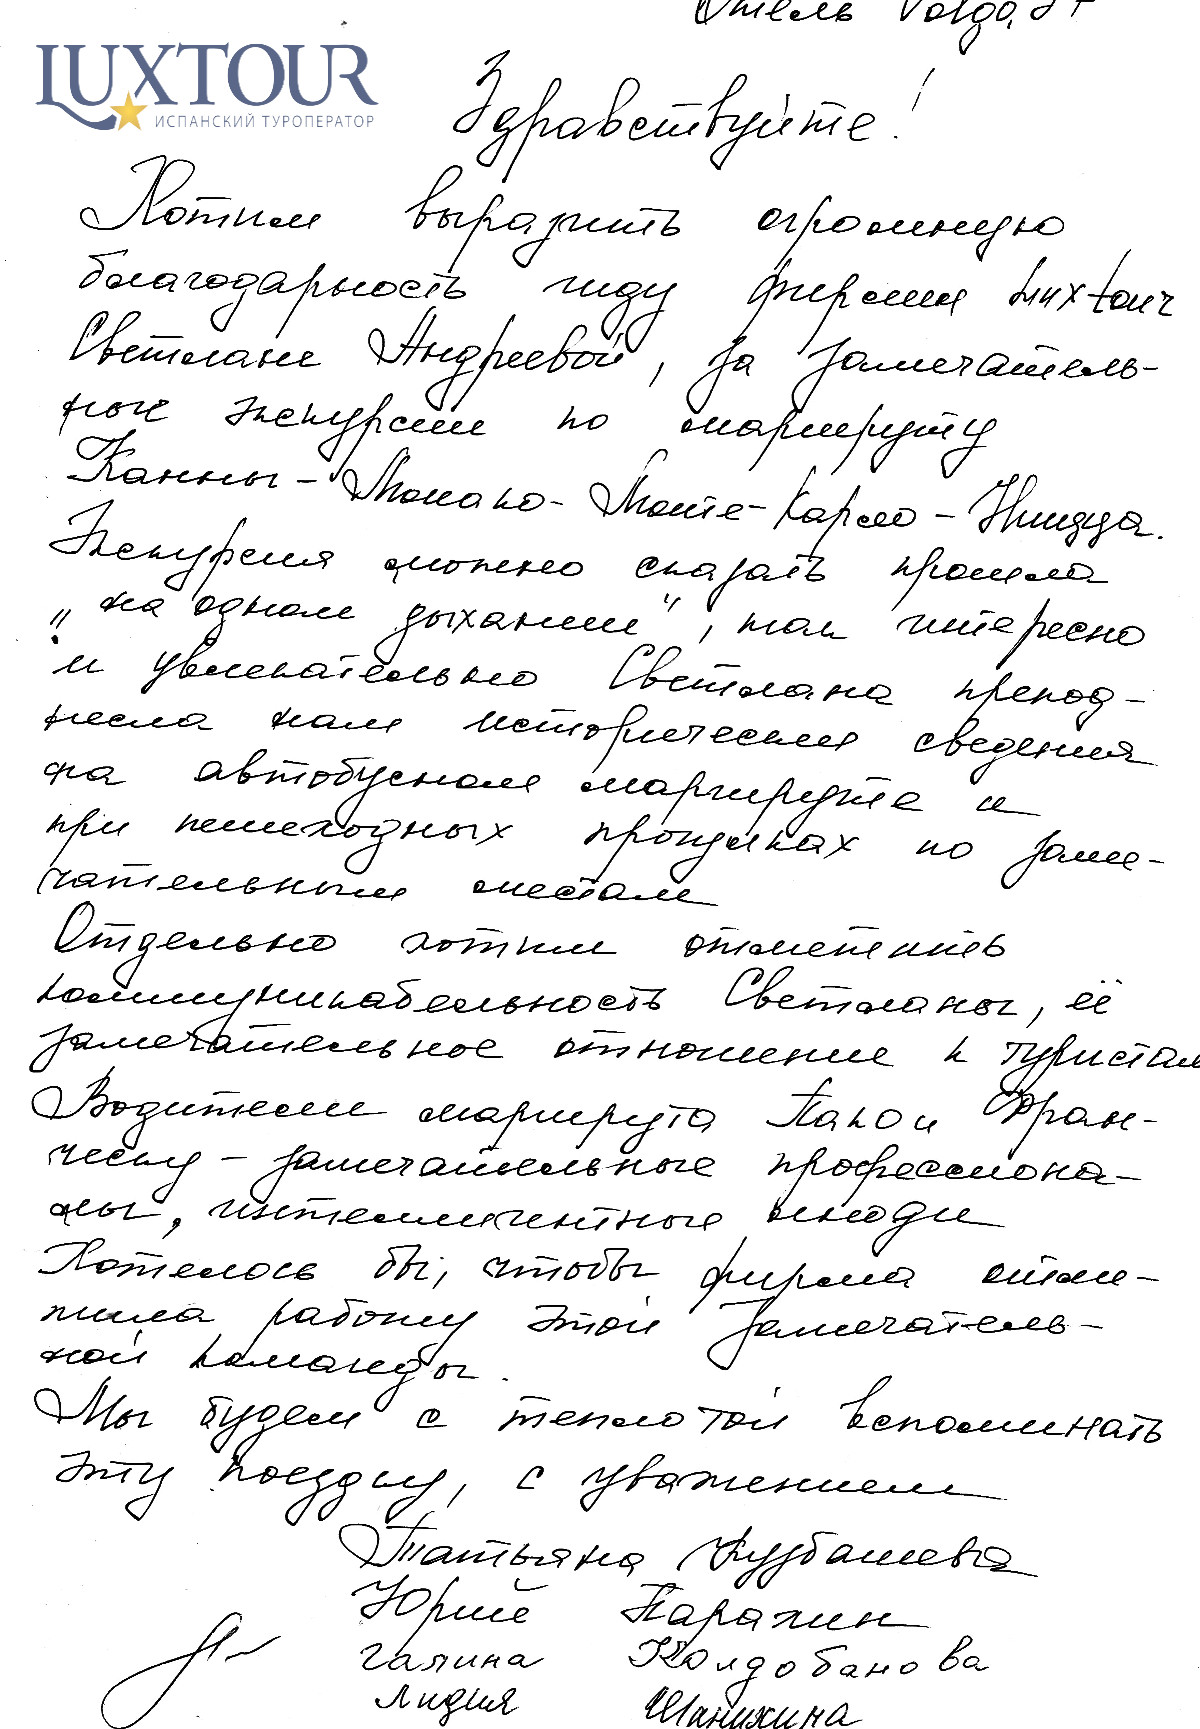 Отель
LUXTOUR
ИСПАНСКИЙ ТУРОПЕРАТОР
Здравствуйте!
Хотим выразить огромную
благодарность гиду фирмы Luxtour
Светлане Андреевой, за замечатель-
ные экскурсии по маршруту
Канны - Монако - Монте-Карло - Ницца.
Экскурсия можно сказать прошла
"на одном дыхании", так интересно
и увлекательно Светлана препод-
несла нам исторические сведения
на автобусном маршруте и
при пешеходных прогулках по заме-
чательным местам
Отдельно хотим отметить
коммуникабельность Светланы, её
замечательное отношение к туристам
Водители маршрута Пако и Фран-
ческу - замечательные профессиона-
лы, интеллигентные люди
Хотелось бы, чтобы фирма отме-
тила работу этой замечатель-
ной команды.
Мы будем с теплотой вспоминать
эту поездку, с уважением
Татьяна
Юрий
Галина Колдобанова
Лидия Шанихина